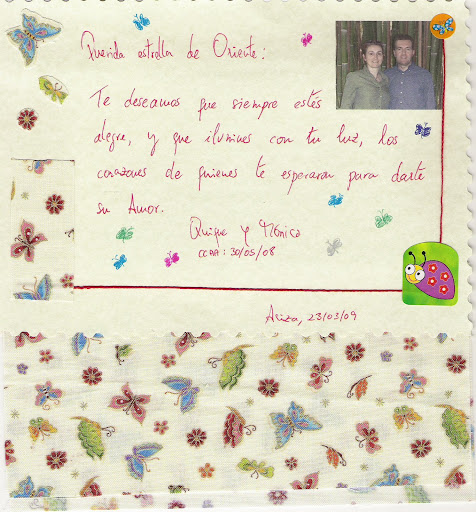 Querida estrella de Oriente:
Te deseamos que siempre estés
alegre, y que ilumines con tu luz, los
corazones de quienes te esperaran para darte
su Amor.
Quique y Mónica
CCAA: 30/05/08
Ariza, 23/03/09